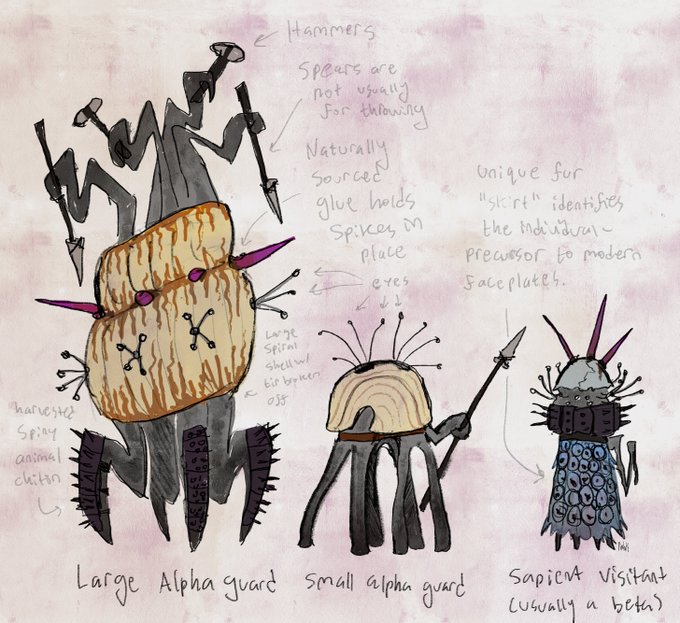 Hammers
Spears are
not usually
for throwing
Naturally
sourced
glue holds
Spikes in
place
eyes
unique fur
"skirt" identifies
the individual-
precursor to modern
faceplates.
Large
Spiral
shell w/
tip broken
off
harvested
Spiny
animal
chitin
Large Alpha guard
Small alpha guard
Sapient Visitant
(usually a beta)